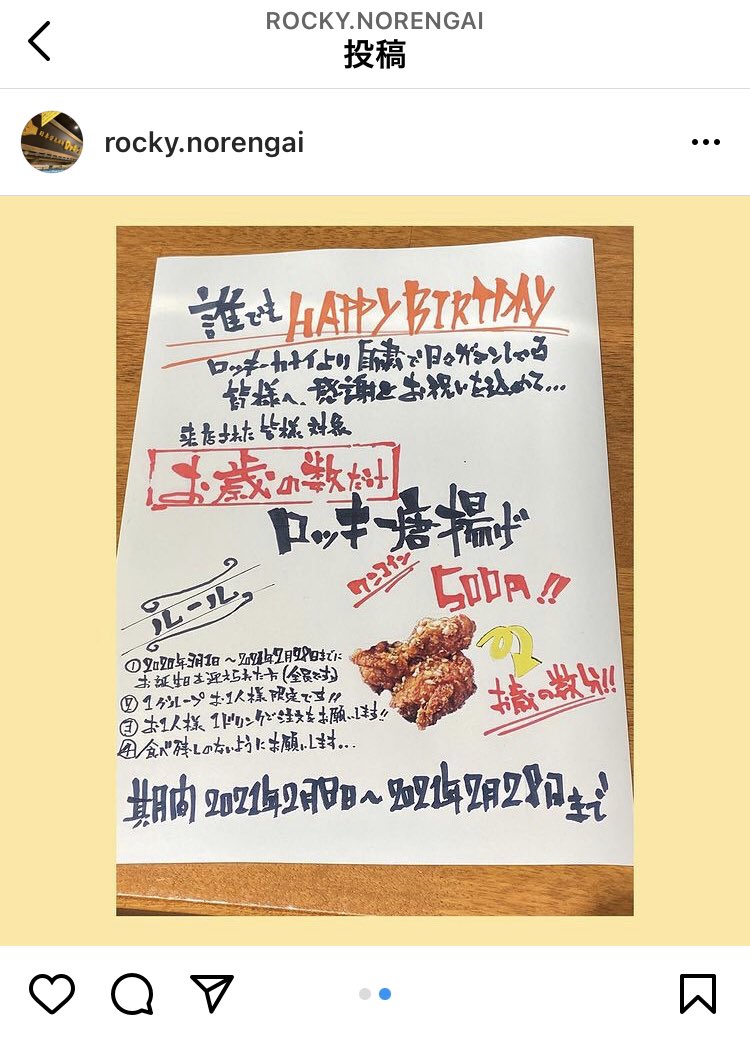 ROCKY.NORENGAI
投稿
rocky.norengai
誰でも HAPPY BIRTDAY
ロッキーカナイより 自粛で日々ガマンしてる
皆様へ、感謝とお祝いを込めて...
来店された皆様対象
お歳の数だけ
ロッキー唐揚げ
ワンコイン 500円!!
ルール
お歳の数分!!
①2020年3月1日〜2021年2月28日までに
お誕生日を迎えられた方(全員です)
②1グループお1人様限定です!!
③お1人様1ドリンクご注文をお願いします!!
④食べ残しのないようにお願いします...
期間 2021年2月8日〜2021年2月28日まで